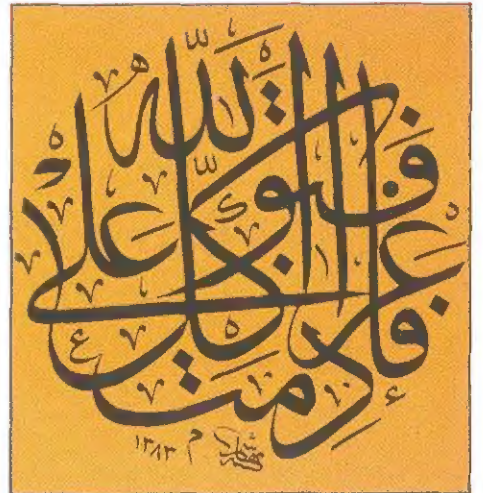 فإذا عزمت فتوكل على الله
١٣٨٣